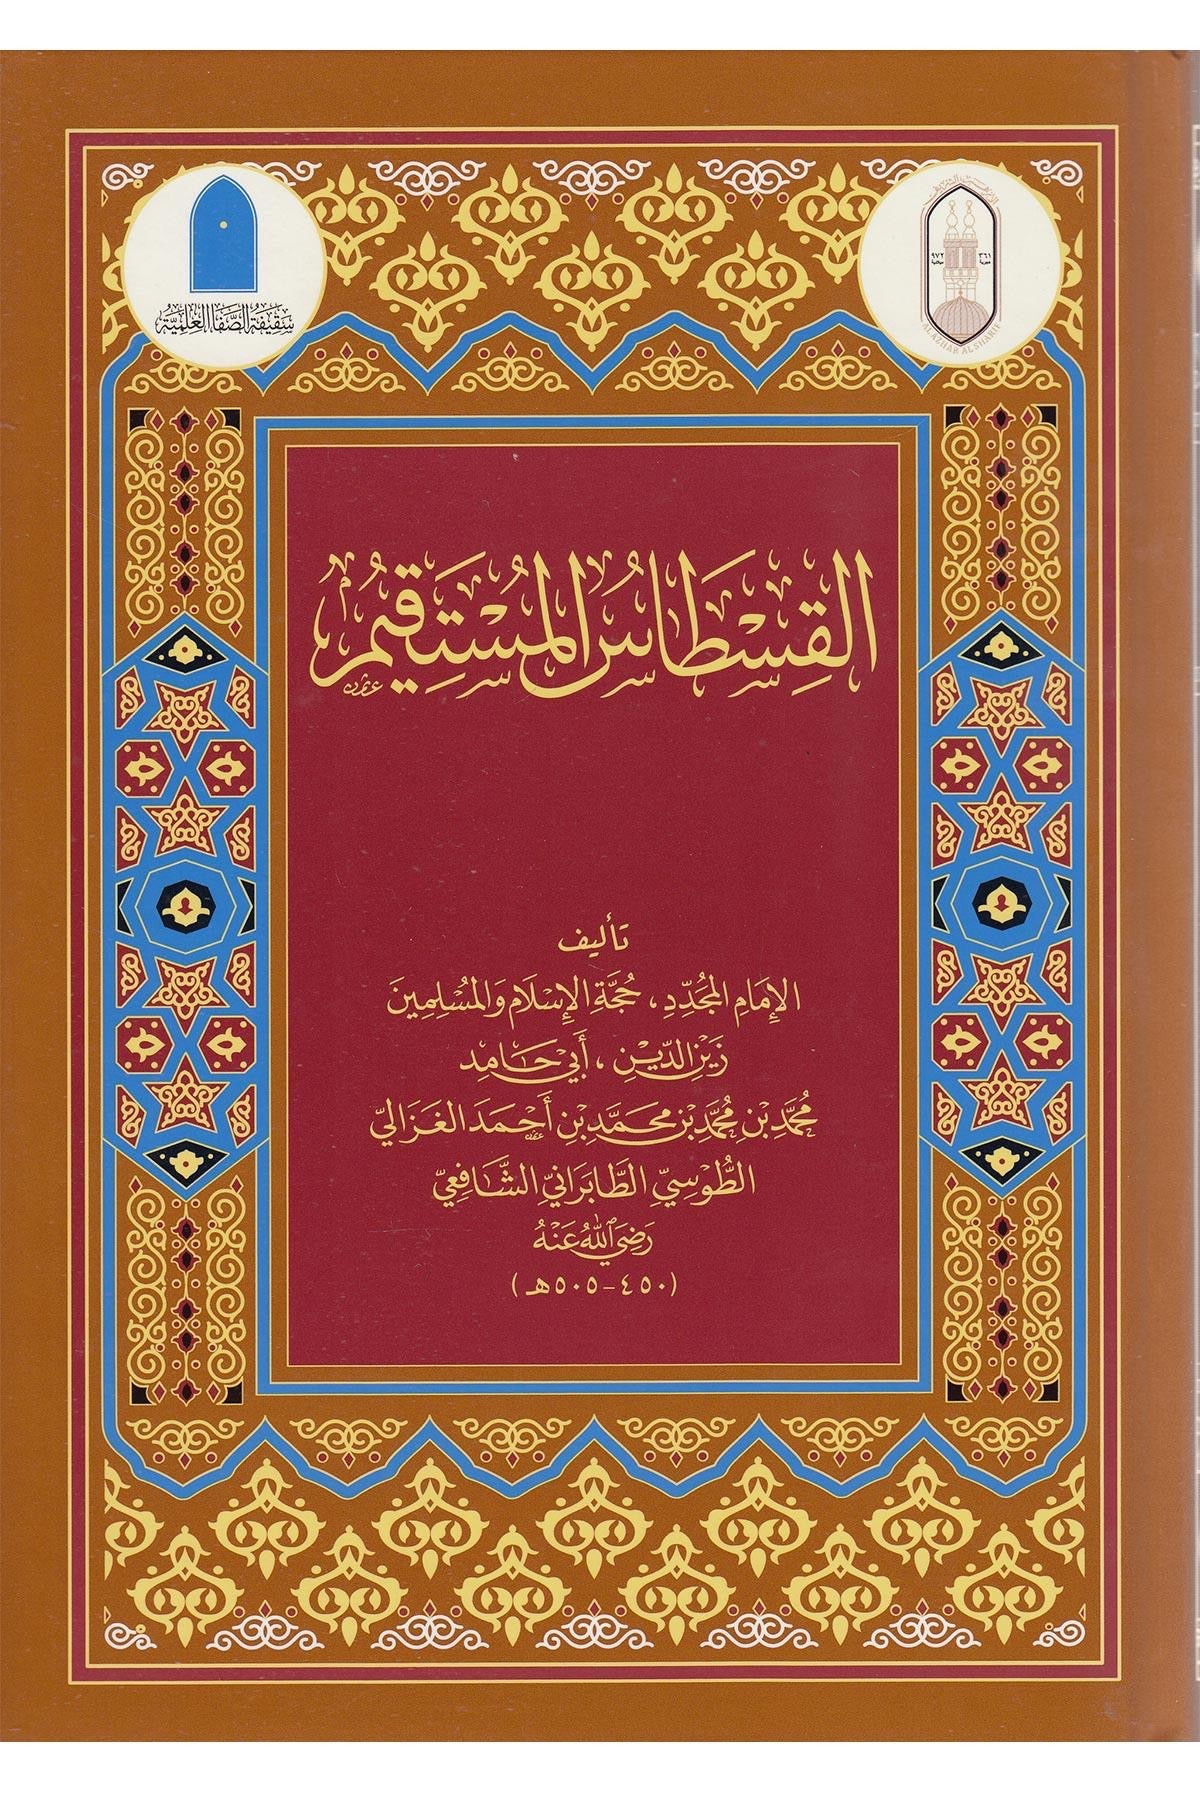 سَقِيفَةُ الصَّفَا العِلْمِيَّةُ
٣٦١ هجرية
٩٧٢ ميلادية
AL AZHAR AL SHARIF
القِسْطَاسُ المُسْتَقِيمُ
تأليف
الإِمَامِ المُجَدِّدِ، حُجَّةِ الإِسْلَامِ وَالمُسْلِمِينَ
زَيْنِ الدِّيْنِ، أَبِي حَامِد
مُحَمَّد بْن مُحَمَّد بْن مُحَمَّد بْنِ أَحْمَدَ الغَزَالِيّ
الطُّوْسِيِّ الطَّابَرَانِيِّ الشَّافِعِيِّ
رَضِيَ اللهُ عَنْهُ
(٤٥٠-٥٠٥هـ)